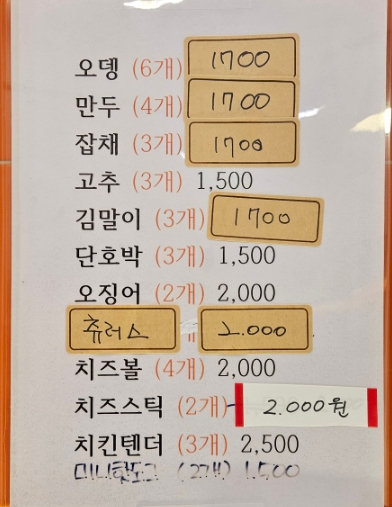 오뎅 (6개) 1700
만두 (4개) 1700
잡채 (3개) 1700
고추 (3개) 1,500
김말이 (3개) 1700
단호박 (3개) 1,500
오징어 (2개) 2,000
츄러스 2.000
치즈볼 (4개) 2,000
치즈스틱 (2개) 2.000원
치킨텐더 (3개) 2,500
미니핫도그 (2개) 1,500